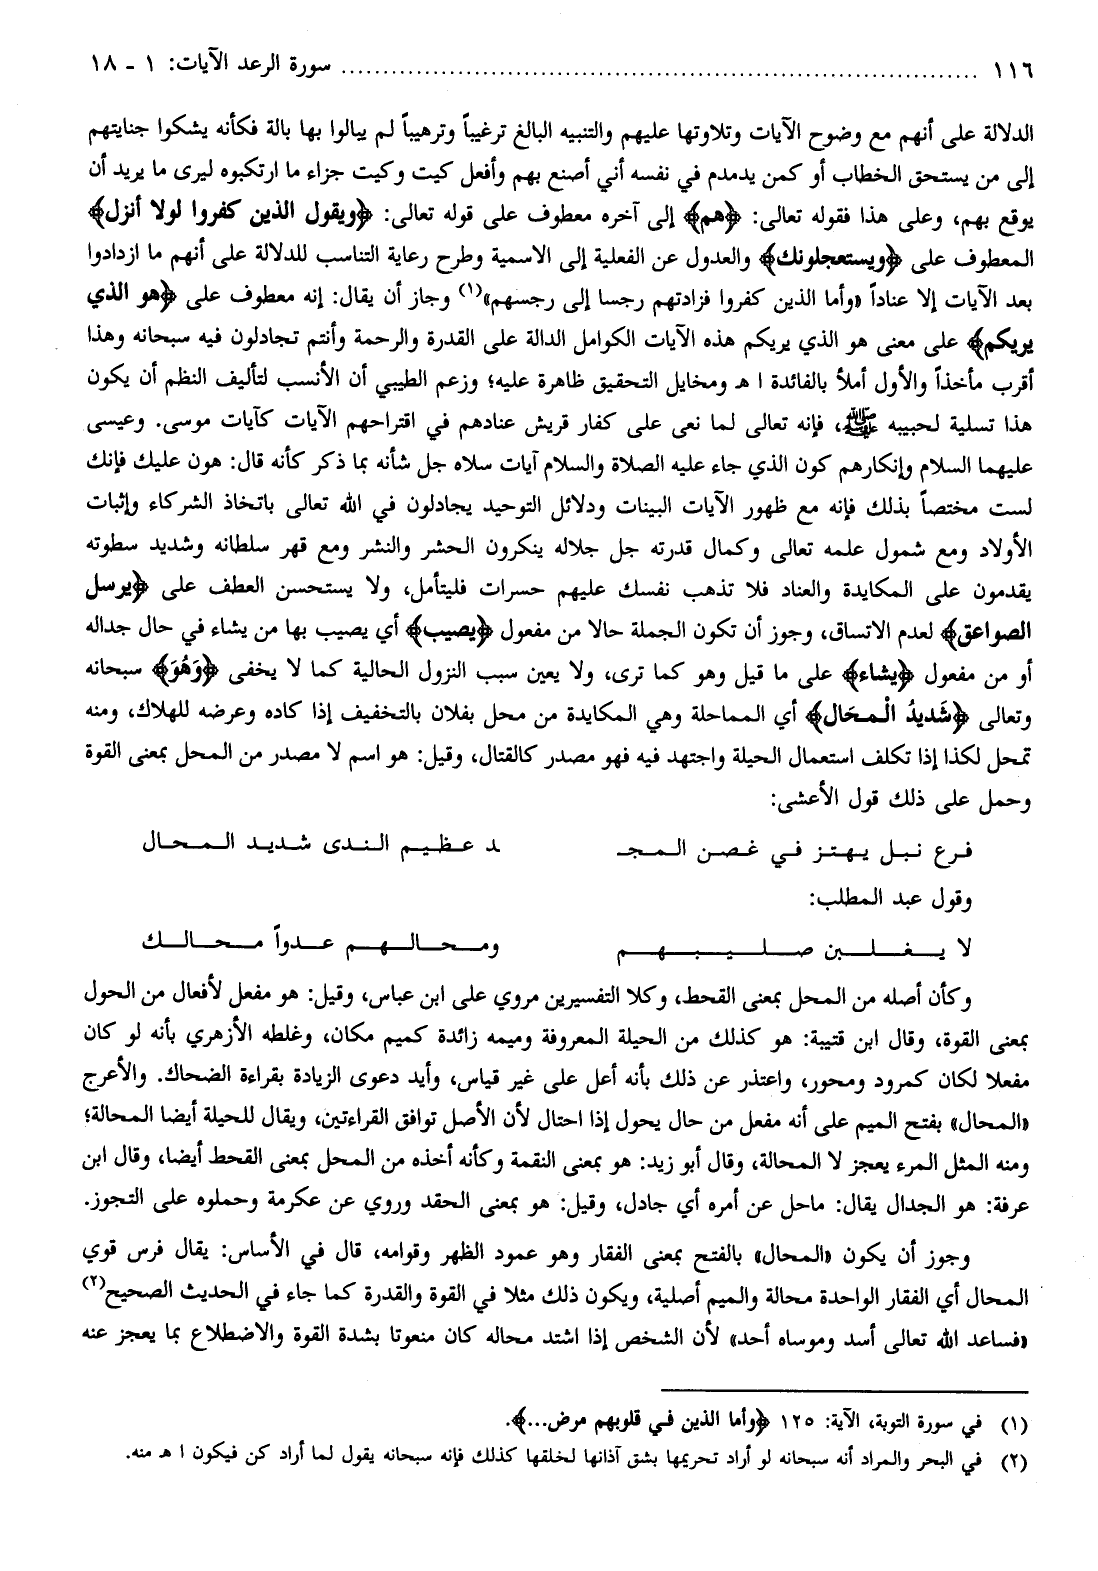 ١١٦ ........................................................................ سورة الرعد الآيات: ١ - ١٨
الدلالة على أنهم مع وضوح الآيات وتلاوتها عليهم والتنبيه البالغ ترغيباً وترهيباً لم يبالوا بها بالة فكأنه يشكوا جنايتهم
إلى من يستحق الخطاب أو كمن يدمدم في نفسه أني أصنع بهم وأفعل كيت وكيت جزاء ما ارتكبوه ليرى ما يريد أن
يوقع بهم، وعلى هذا فقوله تعالى: ﴿هم﴾ إلى آخره معطوف على قوله تعالى: ﴿ويقول الذين كفروا لولا أنزل﴾
المعطوف على ﴿ويستعجلونك﴾ والعدول عن الفعلية إلى الاسمية وطرح رعاية التناسب للدلالة على أنهم ما ازدادوا
بعد الآيات إلا عناداً «وأما الذين كفروا فزادتهم رجسا إلى رجسهم»(١) وجاز أن يقال: إنه معطوف على ﴿هو الذي
يريكم﴾ على معنى هو الذي يريكم هذه الآيات الكوامل الدالة على القدرة والرحمة وأنتم تجادلون فيه سبحانه وهذا
أقرب مأخذاً والأول أملأ بالفائدة ا هـ ومخايل التحقيق ظاهرة عليه؛ وزعم الطيبي أن الأنسب لتأليف النظم أن يكون
هذا تسلية لحبيبه ﷺ، فإنه تعالى لما نعى على كفار قريش عنادهم في اقتراحهم الآيات كآيات موسى. وعيسى
عليهما السلام وإنكارهم كون الذي جاء عليه الصلاة والسلام آيات سلاه جل شأنه بما ذكر كأنه قال: هون عليك فإنك
لست مختصاً بذلك فإنه مع ظهور الآيات البينات ودلائل التوحيد يجادلون في الله تعالى باتخاذ الشركاء وإثبات
الأولاد ومع شمول علمه تعالى وكمال قدرته جل جلاله ينكرون الحشر والنشر ومع قهر سلطانه وشديد سطوته
يقدمون على المكايدة والعناد فلا تذهب نفسك عليهم حسرات فليتأمل، ولا يستحسن العطف على ﴿يرسل
الصواعق﴾ لعدم الاتساق، وجوز أن تكون الجملة حالا من مفعول ﴿يصيب﴾ أي يصيب بها من يشاء في حال جداله
أو من مفعول ﴿يشاء﴾ على ما قيل وهو كما ترى، ولا يعين سبب النزول الحالية كما لا يخفى ﴿وَهُوَ﴾ سبحانه
وتعالى ﴿شَديدُ الْمحَال﴾ أي المماحلة وهي المكايدة من محل بفلان بالتخفيف إذا كاده وعرضه للهلاك، ومنه
تمحل لكذا إذا تكلف استعمال الحيلة واجتهد فيه فهو مصدر كالقتال، وقيل: هو اسم لا مصدر من المحل بمعنى القوة
وحمل على ذلك قول الأعشى:
فرع نبل يهتز في غصن المجـ د عظيم الندى شديد المحال
وقول عبد المطلب:
لا يغلبن صليبهم ومحالهم عدواً محالك
وكأن أصله من المحل بمعنى القحط، وكلا التفسيرين مروي على ابن عباس، وقيل: هو مفعل لأفعال من الحول
بمعنى القوة، وقال ابن قتيبة: هو كذلك من الحيلة المعروفة وميمه زائدة كميم مكان، وغلطه الأزهري بأنه لو كان
مفعلا لكان كمرود ومحور، واعتذر عن ذلك بأنه أعل على غير قياس، وأيد دعوى الزيادة بقراءة الضحاك. والأعرج
«المحال» بفتح الميم على أنه مفعل من حال يحول إذا احتال لأن الأصل توافق القراءتين، ويقال للحيلة أيضا المحالة؛
ومنه المثل المرء يعجز لا المحالة، وقال أبو زيد: هو بمعنى النقمة وكأنه أخذه من المحل بمعنى القحط أيضا، وقال ابن
عرفة: هو الجدال يقال: ماحل عن أمره أي جادل، وقيل: هو بمعنى الحقد وروي عن عكرمة وحملوه على التجوز.
وجوز أن يكون «المحال» بالفتح بمعنى الفقار وهو عمود الظهر وقوامه، قال في الأساس: يقال فرس قوي
المحال أي الفقار الواحدة محالة والميم أصلية، ويكون ذلك مثلا في القوة والقدرة كما جاء في الحديث الصحيح(٢)
«فساعد الله تعالى أسد وموساه أحد» لأن الشخص إذا اشتد محاله كان منعوتا بشدة القوة والاضطلاع بما يعجز عنه
(١) في سورة التوبة، الآية: ١٢٥ ﴿وأما الذين في قلوبهم مرض...﴾.
(٢) في البحر والمراد أنه سبحانه لو أراد تحريمها بشق آذانها لخلقها كذلك فإنه سبحانه يقول لما أراد كن فيكون ا هـ منه.